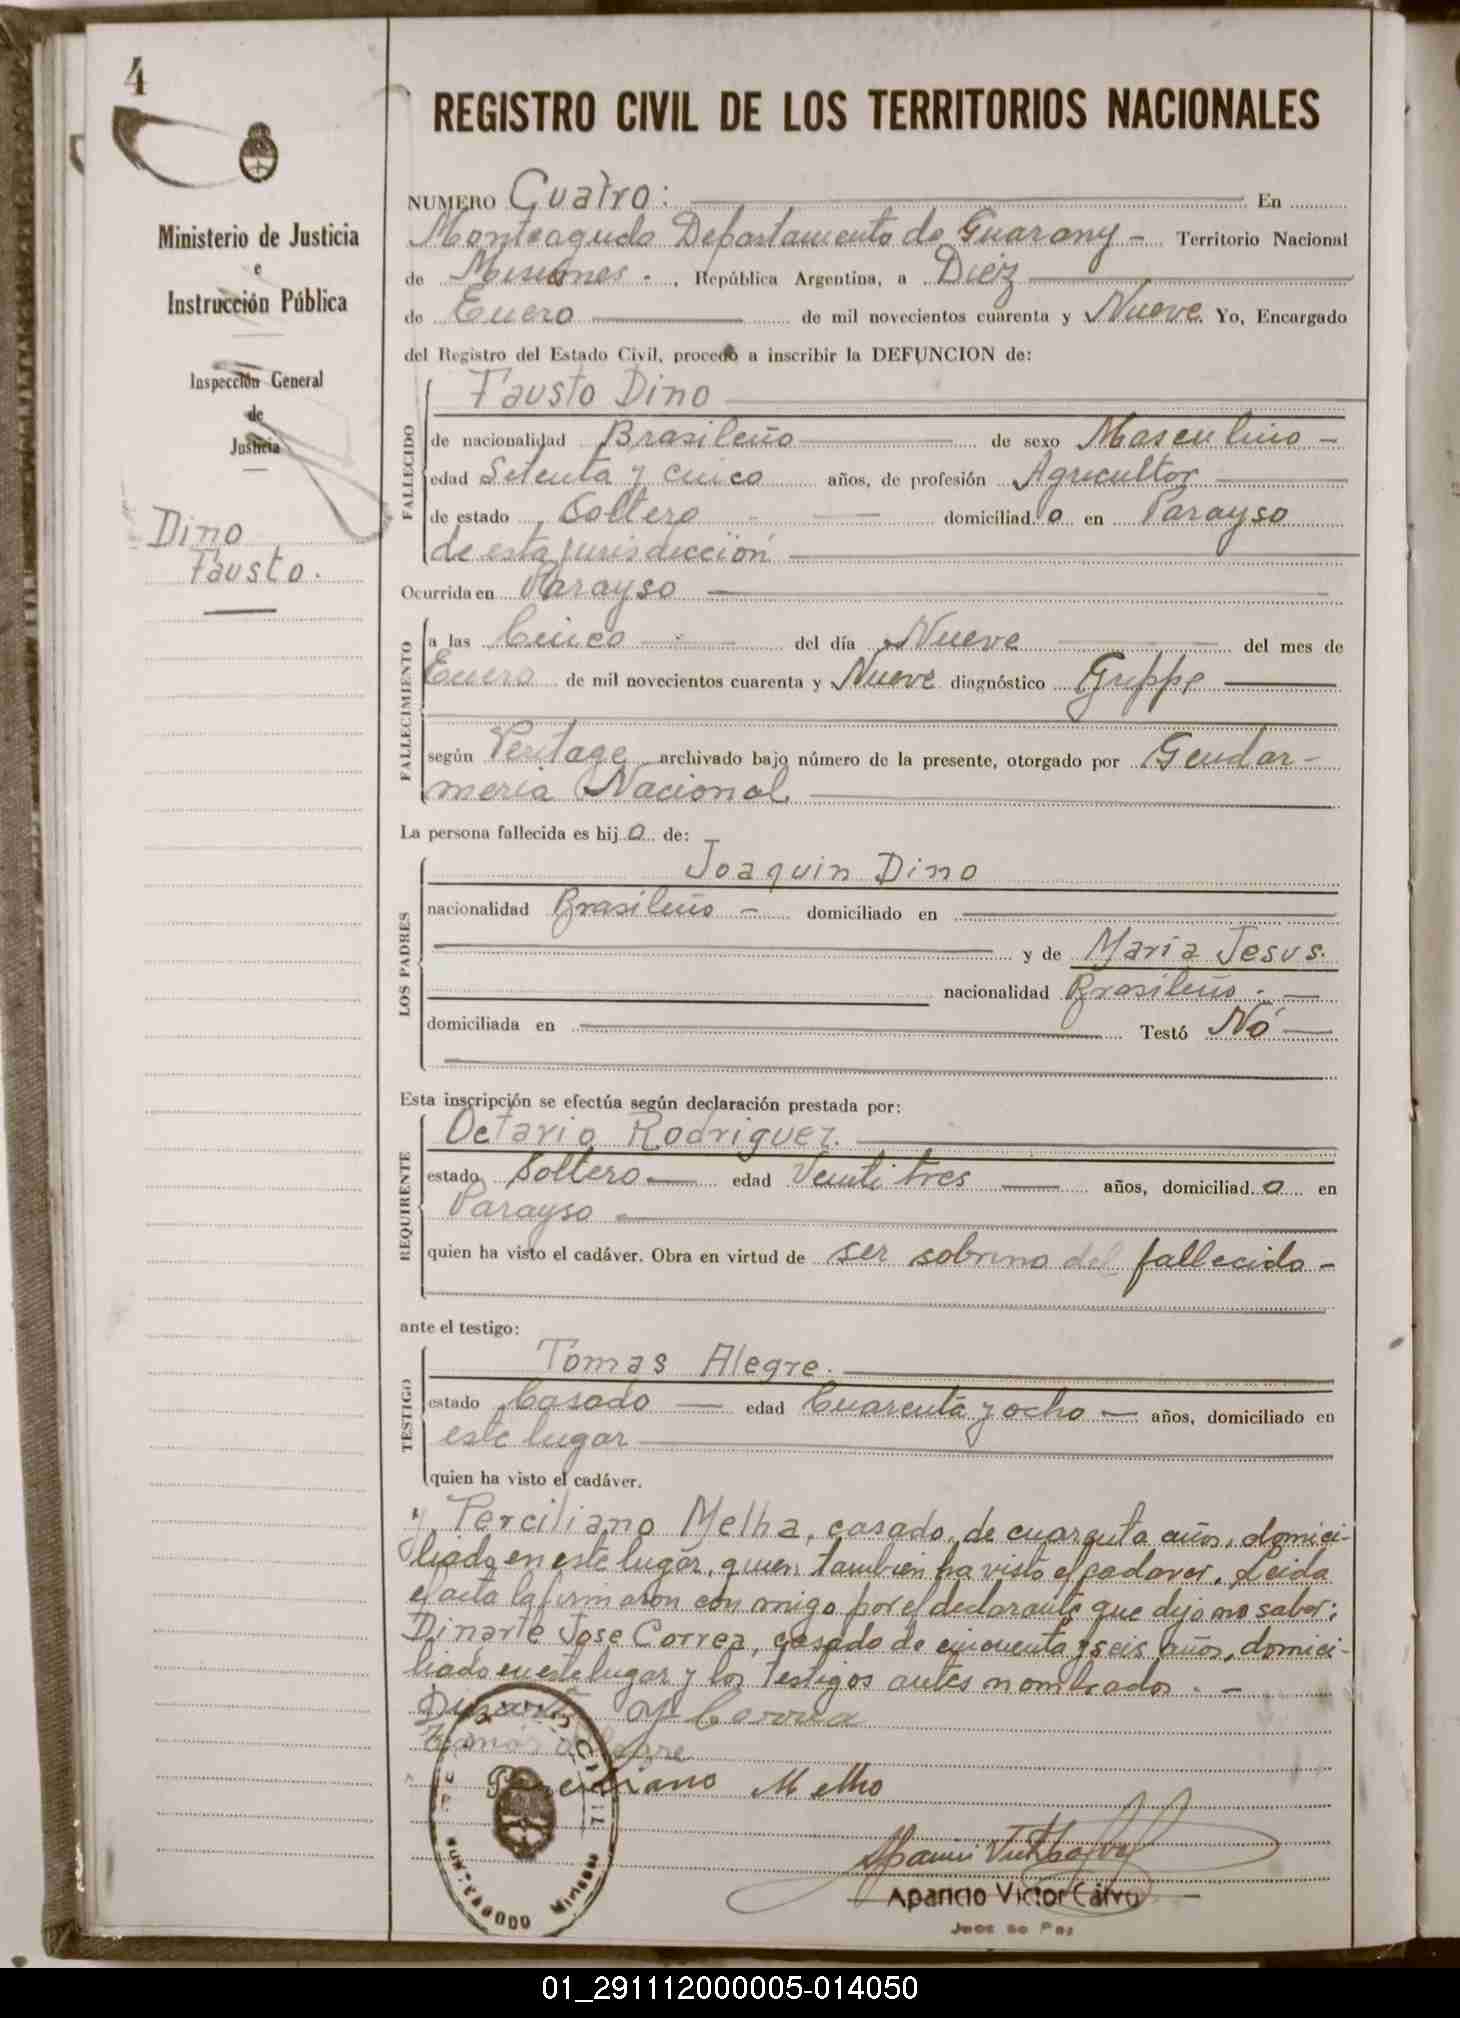 4
REGISTRO CIVIL DE LOS TERRITORIOS NACIONALES
Ministerio de Justicia
e
Instrucción Pública
Inspección General
de
Justicia
Dino
Fausto.
NUMERO Cuatro: En
Monteagudo Departamento de Guarany - Territorio Nacional
de Misiones - , República Argentina, a Diéz
de Enero de mil novecientos cuarenta y Nueve. Yo, Encargado
del Registro del Estado Civil, procedo a inscribir la DEFUNCION de:
FALLECIDO
Fausto Dino
de nacionalidad Brasileño de sexo Masculino -
edad Setenta y cinco años, de profesión Agricultor
de estado Soltero domiciliad o en Parayso
de esta jurisdicción
Ocurrida en Parayso
FALLECIMIENTO
a las Cinco del día Nueve del mes de
Enero de mil novecientos cuarenta y Nueve diagnóstico Grippe
según Peritage archivado bajo número de la presente, otorgado por Gendar-
meria Nacional
La persona fallecida es hij o de:
LOS PADRES
Joaquin Dino
nacionalidad Brasileño - domiciliado en
y de Maria Jesus.
nacionalidad Brasileño -
domiciliada en Testó Nó
Esta inscripción se efectúa según declaración prestada por:
REQUIRENTE
Octavio Rodriguez.
estado Soltero edad Veinti tres años, domiciliad o en
Parayso
quien ha visto el cadáver. Obra en virtud de ser sobrino del fallecido -
ante el testigo:
TESTIGO
Tomas Alegre.
estado Casado edad Cuarenta y ocho años, domiciliado en
este lugar
quien ha visto el cadáver.
y Perciliano Melha, casado, de cuarenta años, domici-
liado en este lugar, quien tambien ha visto el cadaver. Leida
el acta la firmaron con migo por el declarante que dijo no saber;
Dinarte Jose Correa, casado de cincuenta y seis años, domici-
liado en este lugar y los testigos antes nombrados. -
Dinarte J Correa
Tomás Alegre
Perciliano Melho
Aparicio Victor Calvo
Juez de Paz
01_291112000005-014050